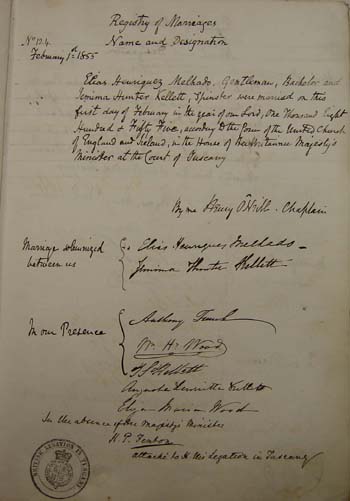 Registry of Marriages
Name and Designation
No 124
February 1st 1855
Elias Henriquez Melhado, Gentleman, Bachelor and
Jemima Hunter Kellett, Spinster were married on this
first day of February in the year of our Lord, One Thousand Eight
Hundred & Fifty Five, according to the form of the United Church
of England and Ireland, in the House of Her Britannic Majesty's
Minister at the Court of Tuscany
By me Henry O'Neill - Chaplain
Marriage solemnized
between us
Elias Henriques Melhado -
Jemima Hunter Kellett
In our Presence
Anthony
Wm Hy Wood
Kellett
Augusta Henrietta Kellett
Eliza Maria Wood
In the absence of Her Majesty's Minister
H. P. Fenton
attaché to H Ms Legation in Tuscany
BRITISH LEGATION IN TUSCANY